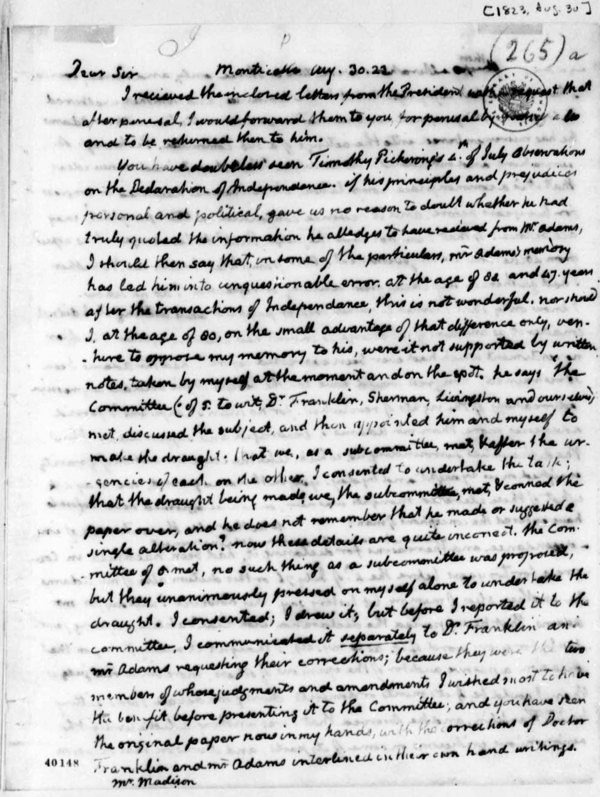 [1823, Aug. 30]
(265) a
Dear Sir Monticello Aug. 30. 23
I recieved the inclosed letters from the President with request that
after perusal, I would forward them to you, for perusal by also
and to be returned then to him.
You have doubtless seen Timothy Pickering's 4th. of July Observations
on the Declaration of Independance. if his principles and prejudices
personal and political, gave us no reason to doubt whether he had
truly quoted the information he alledges to have recieved from Mr. Adams,
I should then say that, in some of the particulars, mr Adams's memory
has led him into unquestionable error. at the age of 88 and 47. years
after the transactions of Independance, this is not wonderful. nor should
I, at the age of 80, on the small advantage of that difference only, ven-
-ture to oppose my memory to his, were it not supported by written
notes, taken by myself at the moment and on the spot. he says 'the
Committee (of 5. to wit, Dr. Franklin, Sherman, Livingston and ourselves)
met, discussed the subject, and then appointed him and myself to
make the draught; that we, as a subcommittee, met, & after the ur-
gencies of each on the other, I consented to undertake the task;
that the draught being made, we, the subcommittee, met, & conned the
paper over, and he does not remember that he made or suggested a
single alteration.' now these details are quite incorrect. the Com-
mittee of 5. met, no such thing as a subcommittee was proposed,
but they unanimously pressed on myself alone to undertake the
draught. I consented; I drew it; but before I reported it to the
committee, I communicated it separately to Dr. Franklin and
mr Adams requesting their corrections; because they were the two
members of whose judgments and amendments I wished most to have
the benefit before presenting it to the Committee; and you have seen
the original paper now in my hands, with the corrections of Doctor
Franklin and mr Adams interlined in their own hand writings.
40148 Mr. Madison